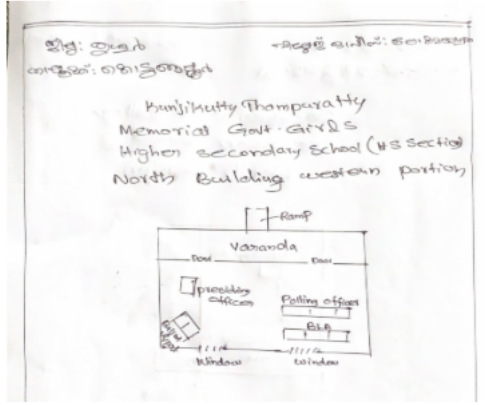 ജില്ല: തൃശ്ശൂർ
വില്ലേജ് ഓഫീസ്:
താലൂക്ക്: കൊടുങ്ങല്ലൂർ
Kunjikutty Thampuratty
Memorial Govt. Girls
Higher secondary School (HS Section)
North Building western portion
Ramp
Varanda
Door Door
presiding officer
Polling officer
BLA
Window Window